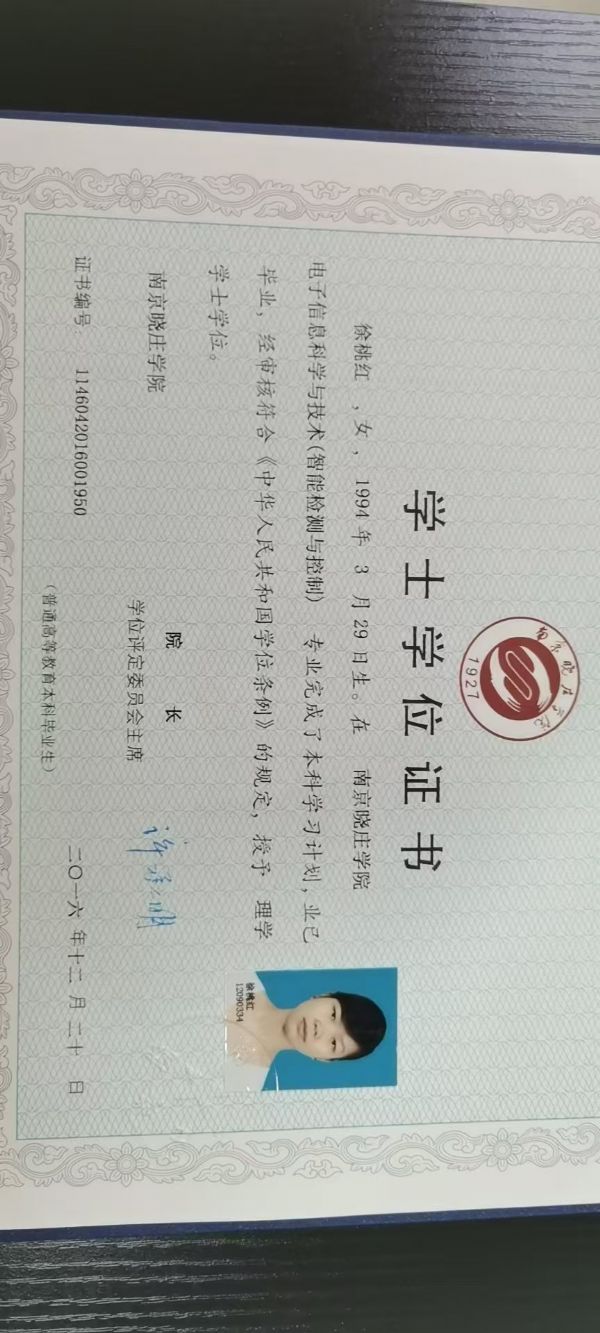 南京晓庄学院
1927
学士学位证书
徐桃红 ，女， 1994 年 3 月 29 日生。在 南京晓庄学院
电子信息科学与技术(智能检测与控制) 专业完成了本科学习计划，业已
毕业，经审核符合《中华人民共和国学位条例》的规定，授予 理学
学士学位。
徐桃红
12090334
南京晓庄学院
院 长
学位评定委员会主席
证书编号： 1146042016001950
二〇一六 年十二 月二十 日
（普通高等教育本科毕业生）